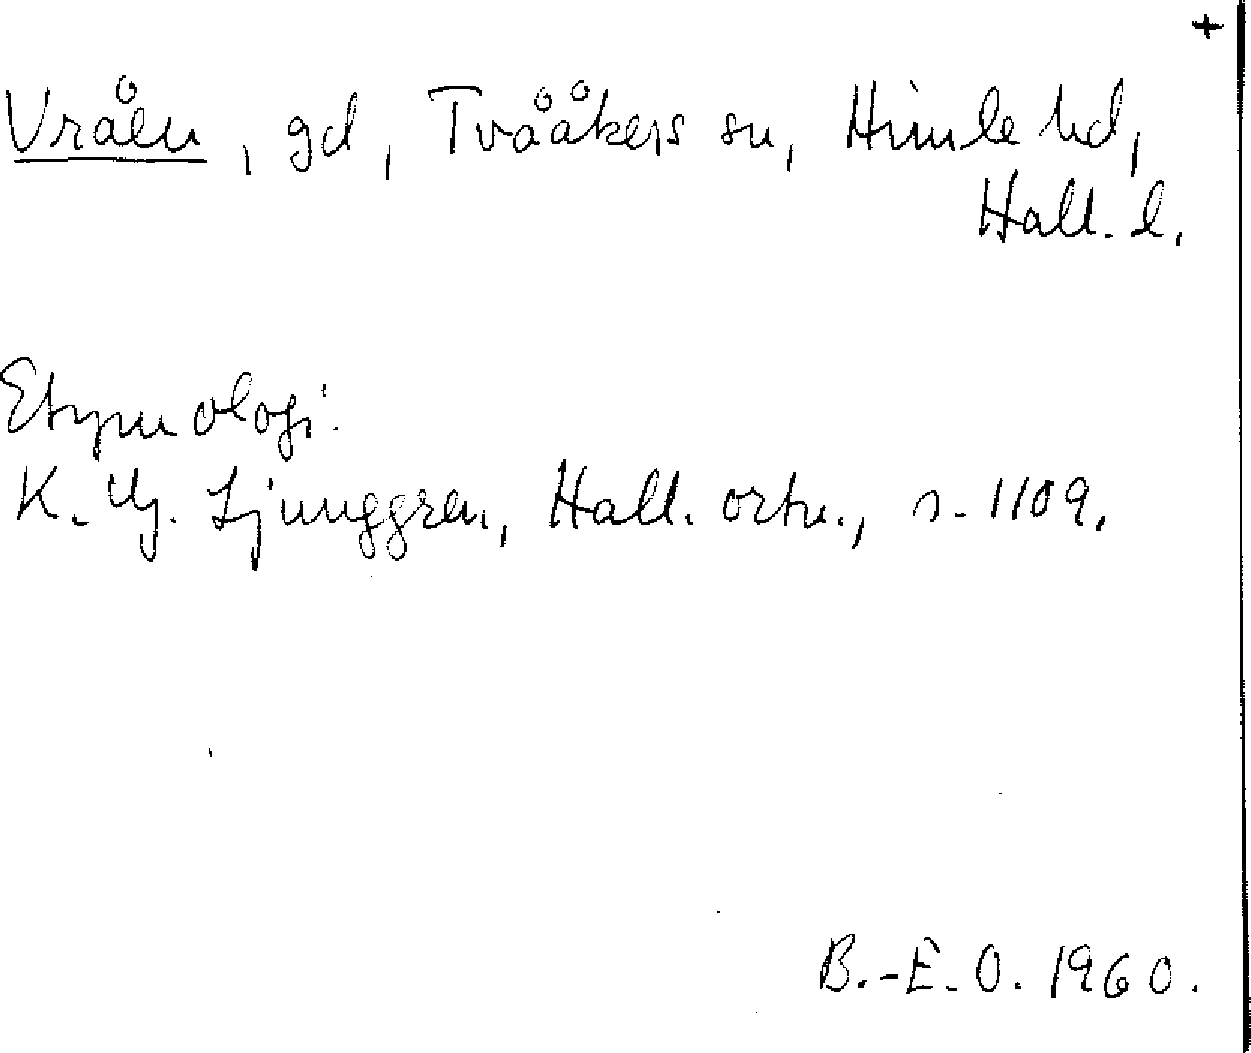 +
Vråen, gd, Tvååkers sn, Himle hd,
Hall. l.
Etymologi:
K. Hj. Ljunggren, Hall. ortn., s. 1109.
B.-E. O. 1960.